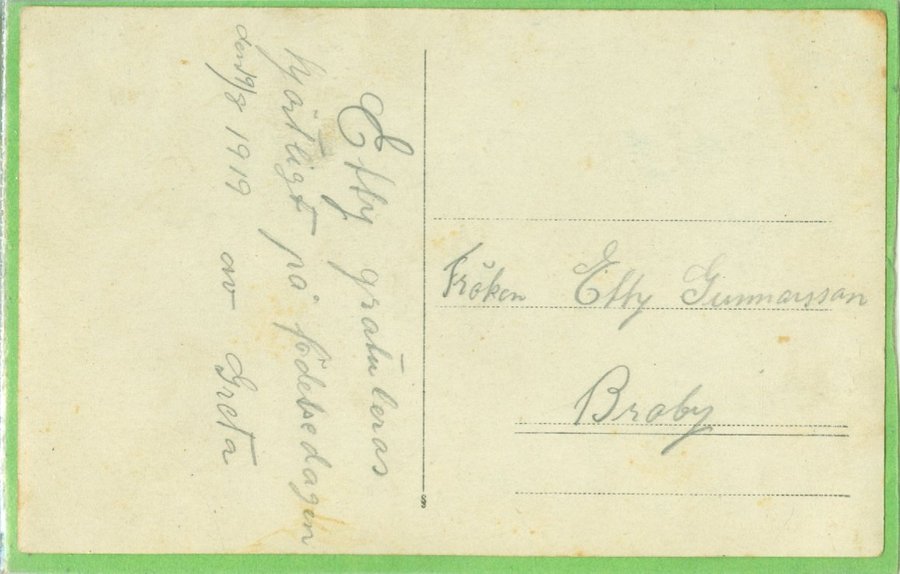 Etty gratuleras
hjärtligt på födelsedagen
den 19/8 1919 av Greta
Fröken Etty Gunnarsson
Broby